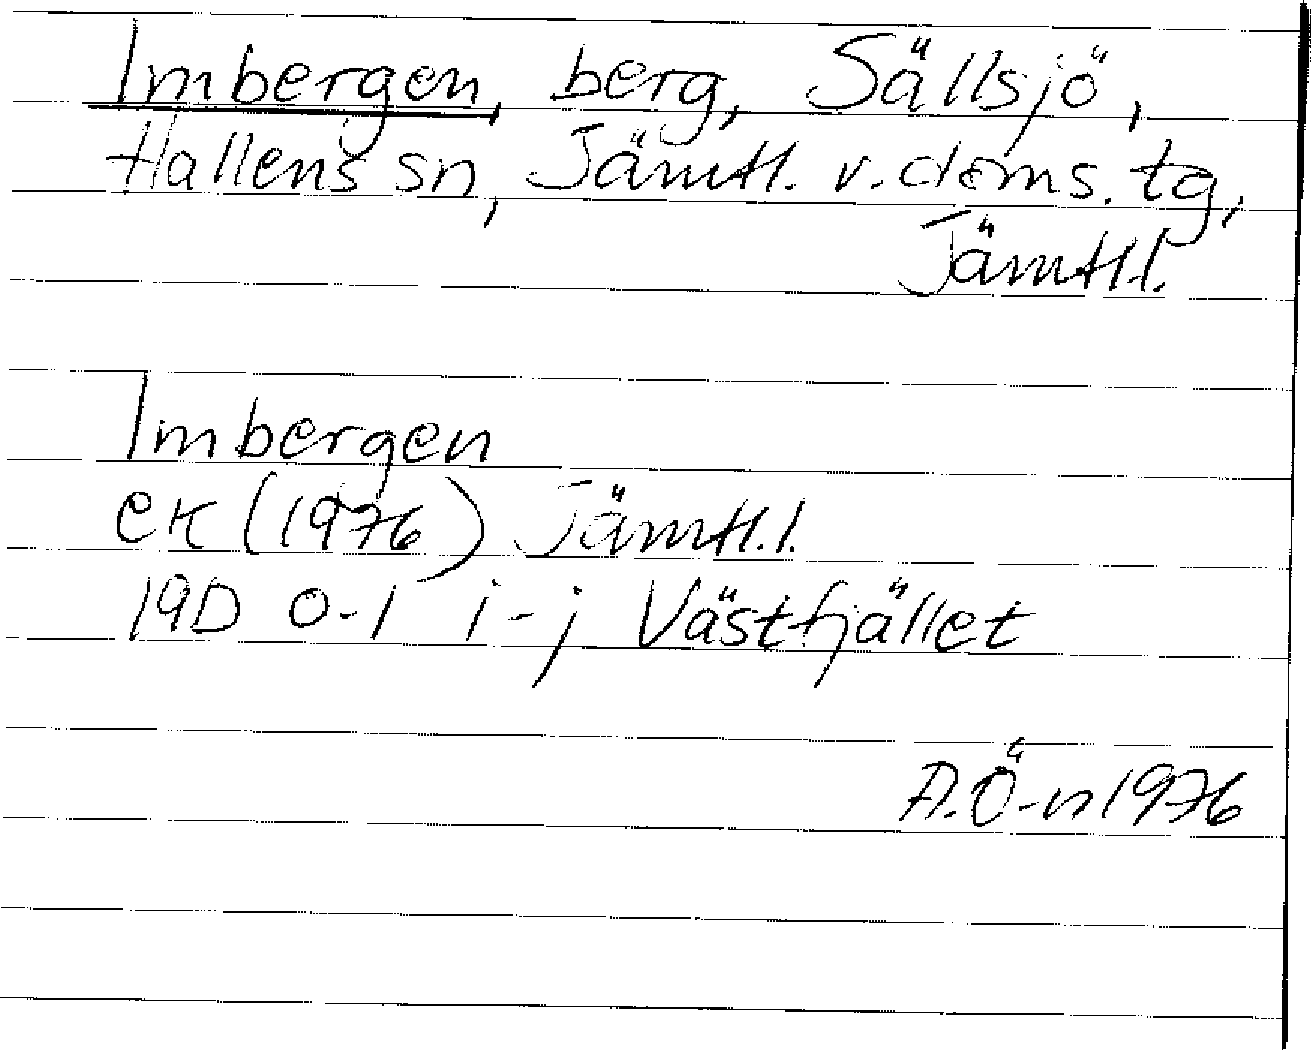 Imbergen, berg, Sällsjö,
Hallens sn, Jämtl. v. doms. tg,
Jämtl.l.
Imbergen
ek (1976) Jämtl.l.
19D 0-1 i-j Västfjället
A.Ö-n 1976